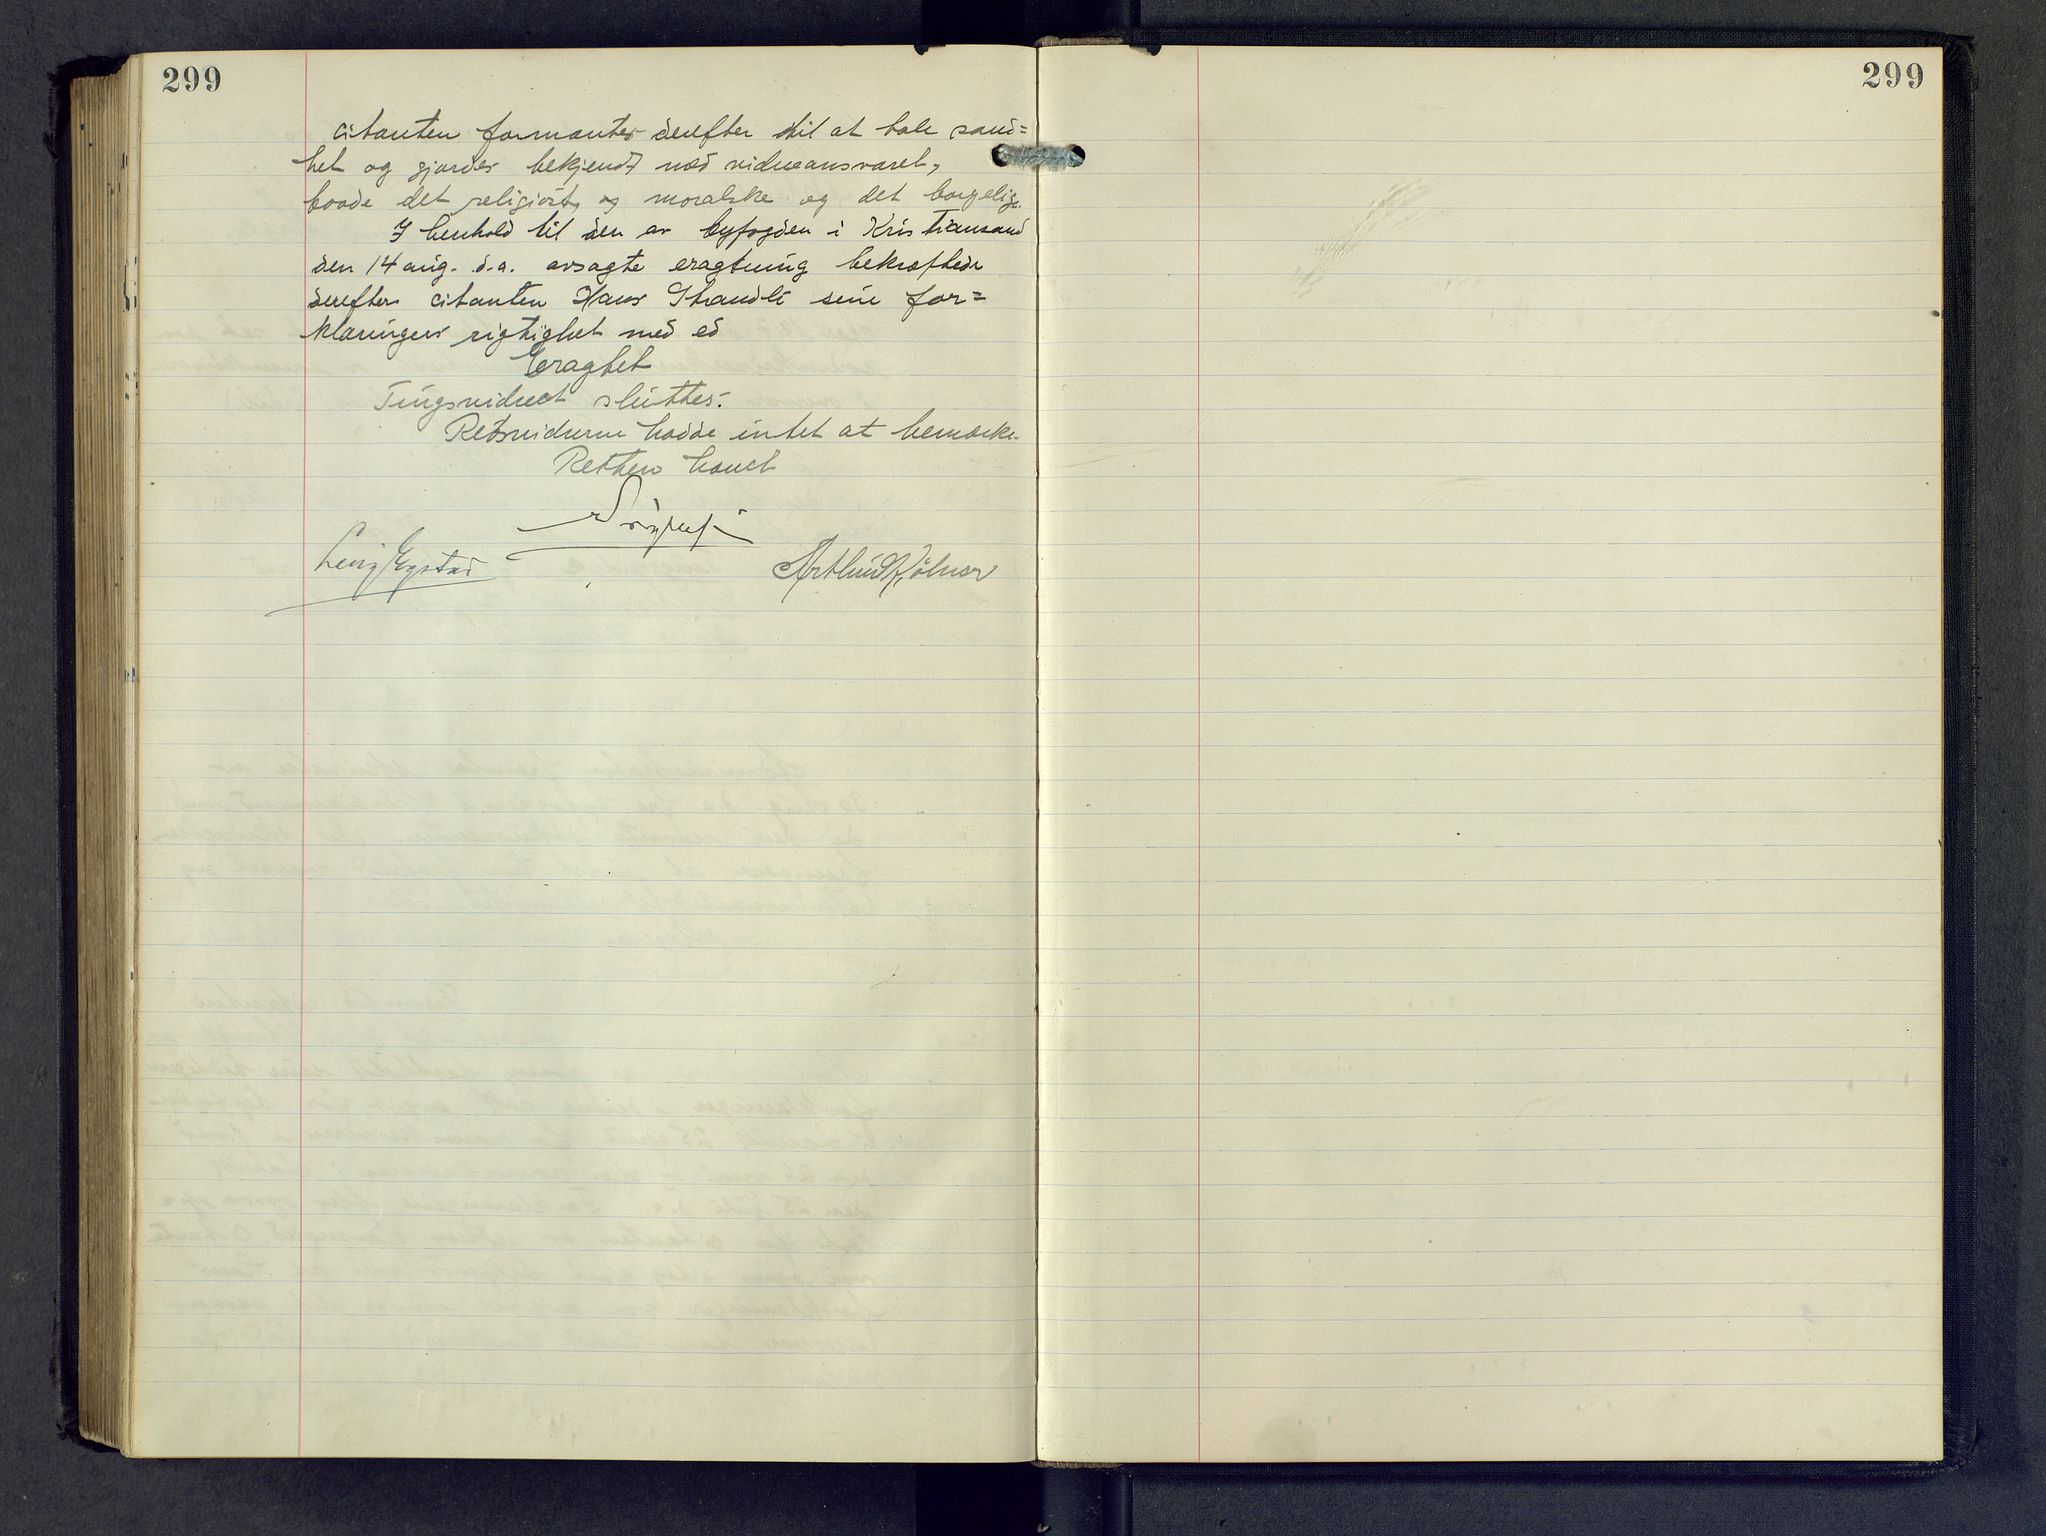 299
299
citanten formantes derefter til at tale sand=
het og gjordes bekjendt med vidneansvaret,
baade det religiøst, og moralske og det borgelige.
I henhold til den av byfogden i Kristiansand
den 14 aug. d.a. avsagte eragtning bekræftede
derefter citanten Hans Strandli sine for=
klaringers rigtighet med ed
Eragtet
Tingsvidnet sluttes.
Retsvidnerne hadde intet at bemærke.
Retten hævet
Arthur